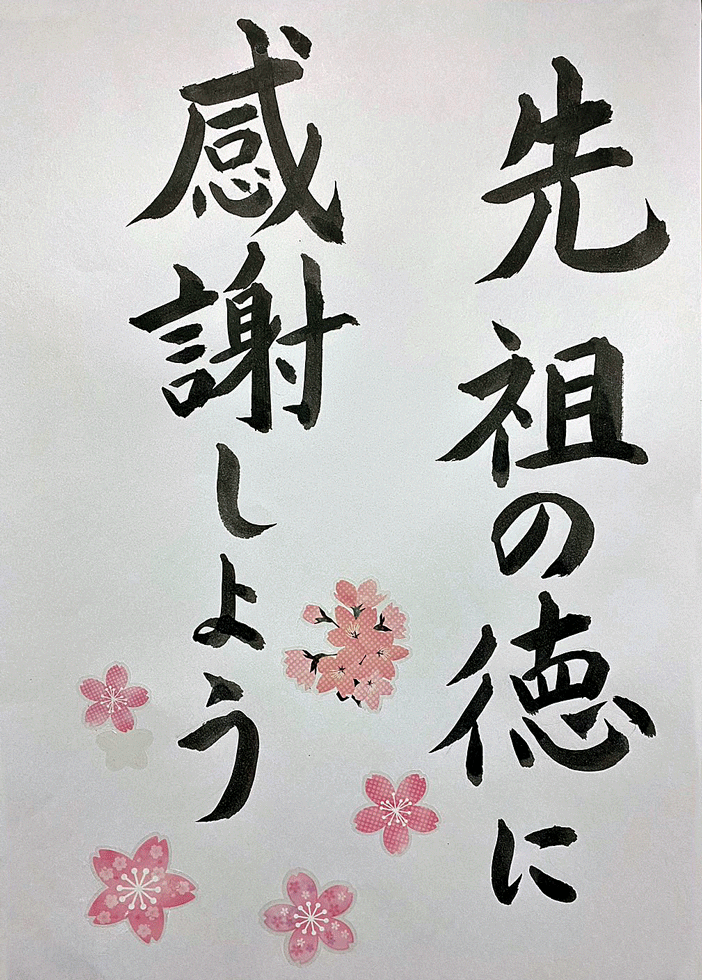 先祖の徳に
感謝しよう